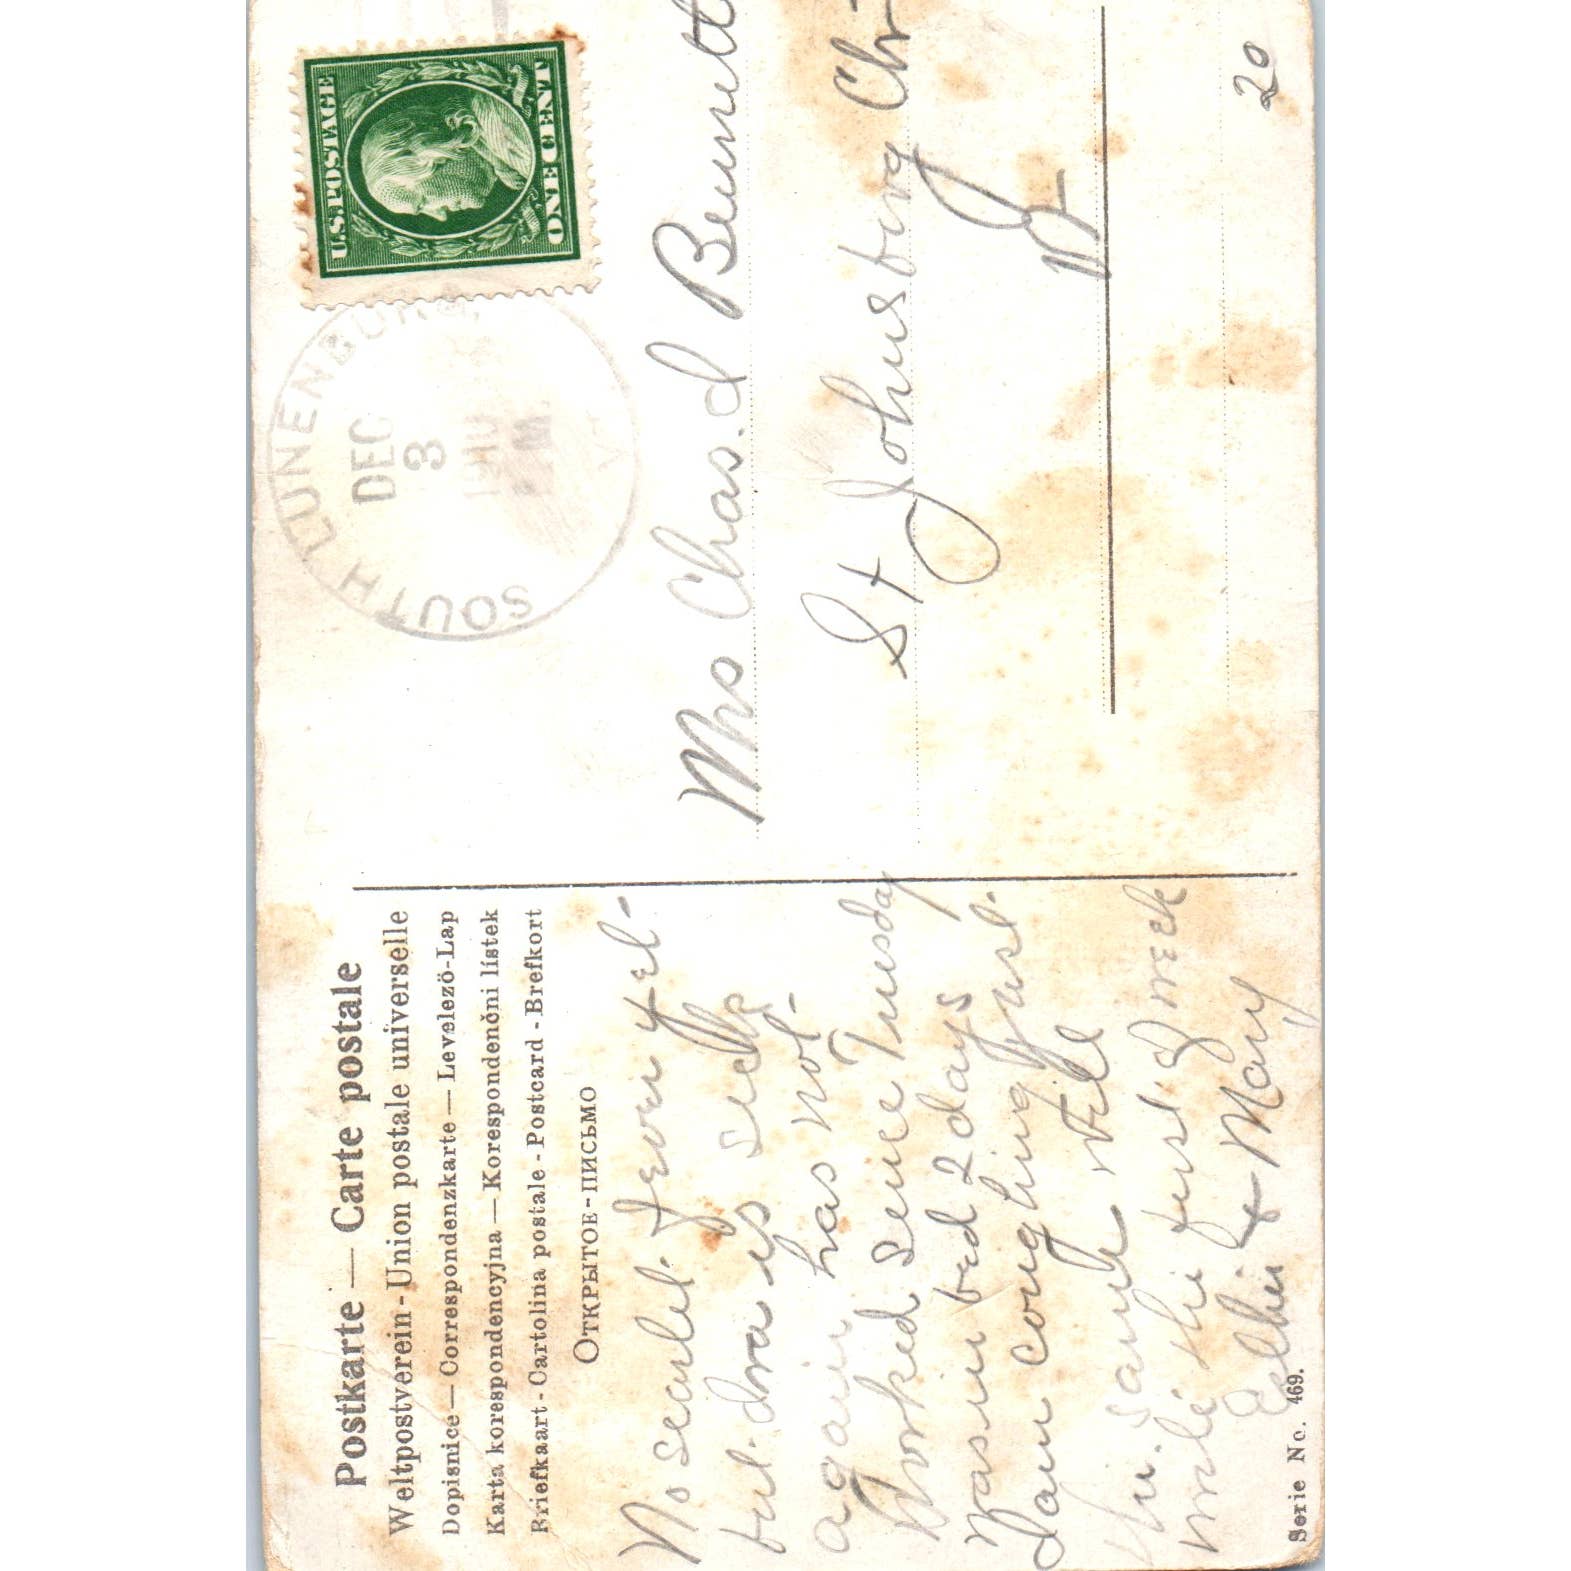 Postkarte — Carte postale
Weltpostverein - Union postale universelle
Dopisnice — Correspondenzkarte — Levelező-Lap
Karta korespondencyjna — Korespondenčni lístek
Briefkaart - Cartolina postale - Postcard - Brefkort
Открытое-письмо
No scarlet fever yet-
but Ira is sick
again has not-
Worked since Tuesday
was in bed 2 days
I am coughing just
the same will
write the first of week
&
Mary
Serie No. 469.
U.S. POSTAGE
ONE CENT
SOUTH LUNENBURG,
DEC
3
1910
M.
VT.
Mrs Chas. d Bennett
St Johnsburg Ctr-
Vt
20